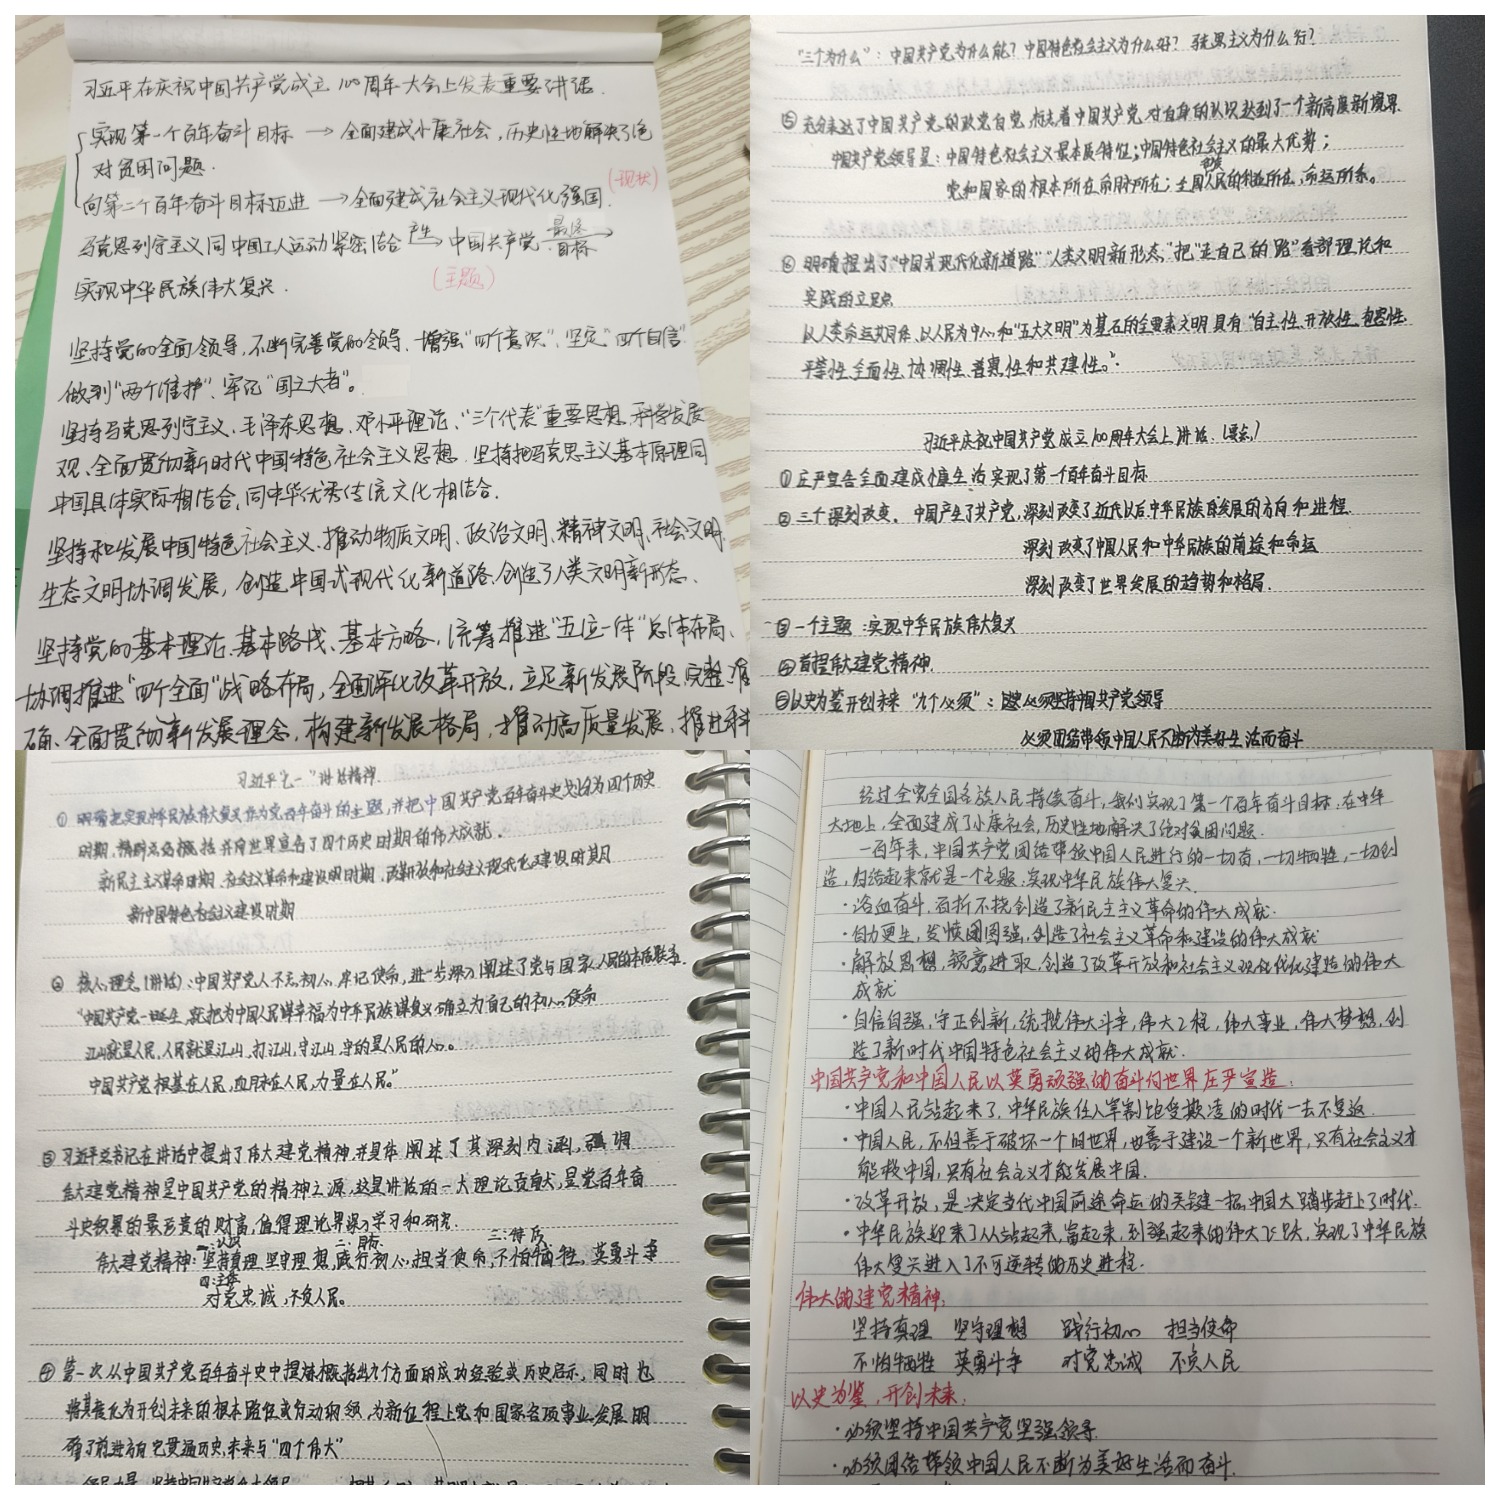 习近平在庆祝中国共产党成立100周年大会上发表重要讲话.
实现第一个百年奋斗目标 → 全面建成小康社会,历史性地解决了绝
对贫困问题.
(现状)
向第二个百年奋斗目标迈进 → 全面建成社会主义现代化强国.
马克思列宁主义同中国工人运动紧密结合 产生→ 中国共产党 最终目标→
(主题)
实现中华民族伟大复兴.
坚持党的全面领导,不断完善党的领导、增强"四个意识"、坚定"四个自信"
做到"两个维护"、牢记"国之大者"。
坚持马克思列宁主义、毛泽东思想、邓小平理论、"三个代表"重要思想、科学发展
观、全面贯彻新时代中国特色社会主义思想. 坚持把马克思主义基本原理同
中国具体实际相结合,同中华优秀传统文化相结合.
坚持和发展中国特色社会主义、推动物质文明、政治文明、精神文明、社会文明、
生态文明协调发展, 创造中国式现代化新道路、创造了人类文明新形态、
坚持党的基本理论、基本路线、基本方略, 统筹推进"五位一体"总体布局、
协调推进"四个全面"战略布局, 全面深化改革开放, 立足新发展阶段,完整准
确、全面贯彻新发展理念, 构建新发展格局, 推动高质量发展, 推进科
"三个为什么": 中国共产党为什么能? 中国特色社会主义为什么好? 马克思主义为什么行?
⑤ 充分表达了中国共产党的政党自觉,标志着中国共产党对自身的认识达到了一个新高度新境界.
中国共产党领导是: 中国特色社会主义最本质特征;中国特色社会主义的最大优势;
党和国家的根本所在命脉所在; 全国人民的利益所在,命运所系。
⑥ 明确提出了"中国式现代化新道路" "人类文明新形态,"把"走自己的路"看部理论和
实践的立足点
以人类命运共同体、以人民为中心和"五大文明"为基石的全要素文明具有"自主性、开放性、包容性、
平等性、全面性、协调性、普惠性和共建性。".
习近平庆祝中国共产党成立100周年大会上讲话.(要点)
① 庄严宣告全面建成小康生活 实现了第一个百年奋斗目标
② 三个深刻改变. 中国产生了共产党,深刻改变了近代以后中华民族自发展的方向和进程.
深刻改变了中国人民和中华民族的前途和命运
深刻改变了世界发展的趋势和格局.
③ 一个主题:实现中华民族伟大复兴
④ 首提伟大建党精神.
⑤以史为鉴开创未来 "九个必须": 必须坚持中国共产党领导
必须团结带领中国人民不断为美好生活而奋斗
习近平"七一"讲话精神.
① 明确把实现中华民族伟大复兴作为党百年奋斗的主题,并把中国共产党百年奋斗史划分为四个历史
时期,精辟立论概括并向世界宣告了四个历史时期的伟大成就.
新民主主义革命时期、社会主义革命和建设明时期、改革开放和社会主义现代化建设时期
新中国特色社会主义建设时期
② 核心理念(讲话):中国共产党人不忘初心,牢记使命,进一步深入阐述了党与国家、人民的本质联系.
"中国共产党一诞生,就把为中国人民谋幸福为中华民族谋复兴确立为自己的初心使命
江山就是人民,人民就是江山,打江山,守江山,守的是人民的心。
中国共产党根基在人民,血脉在人民,力量在人民。"
③ 习近平总书记在讲话中提出了伟大建党精神,并具体阐述了其深刻内涵,强调
伟大建党精神是中国共产党的精神之源,这是讲话的一大理论贡献,是党百年奋
斗史积累的最宝贵的财富,值得理论界深入学习和研究.
一:认识 二:目标 三:特质
伟大建党精神:坚持真理、坚守理想,践行初心、担当使命,不怕牺牲,英勇斗争
四:主体
对党忠诚,不负人民。
④ 第一次从中国共产党百年奋斗史中提炼概括出九个方面的成功经验类历史启示,同时也
将其转化为开创未来的根本路径或行动纲领,为新征程上党和国家各项事业发展明
确了前进方向它贯通历史、未来与"四个伟大"
经过全党全国各族人民持续奋斗,我们实现了第一个百年奋斗目标,在中华
大地上,全面建成了小康社会,历史性地解决了绝对贫困问题.
一百年来,中国共产党团结带领中国人民进行的一切奋,一切牺牲,一切创
造,归结起来就是一个主题:实现中华民族伟大复兴.
·浴血奋斗,百折不挠,创造了新民主主义革命的伟大成就.
·自力更生,发愤图强,创造了社会主义革命和建设的伟大成就
·解放思想,锐意进取,创造了改革开放和社会主义现代化建设的伟大
成就
·自信自强,守正创新,统揽伟大斗争,伟大工程,伟大事业,伟大梦想,创
造了新时代中国特色社会主义的伟大成就.
中国共产党和中国人民以英勇顽强的奋斗向世界庄严宣告:
·中国人民站起来了,中华民族任人宰割饱受欺凌的时代一去不复返
·中国人民,不但善于破坏一个旧世界,也善于建设一个新世界,只有社会主义才
能救中国,只有社会主义才能发展中国.
·改革开放,是决定当代中国前途命运的关键一招,中国大踏步赶上了时代.
·中华民族迎来了从站起来,富起来,到强起来的伟大飞跃,实现了中华民族
伟大复兴进入了不可逆转的历史进程.
伟大的建党精神:
坚持真理 坚守理想 践行初心 担当使命
不怕牺牲 英勇斗争 对党忠诚 不负人民
以史为鉴,开创未来:
·必须坚持中国共产党坚强领导.
·必须团结带领中国人民不断为美好生活而奋斗.